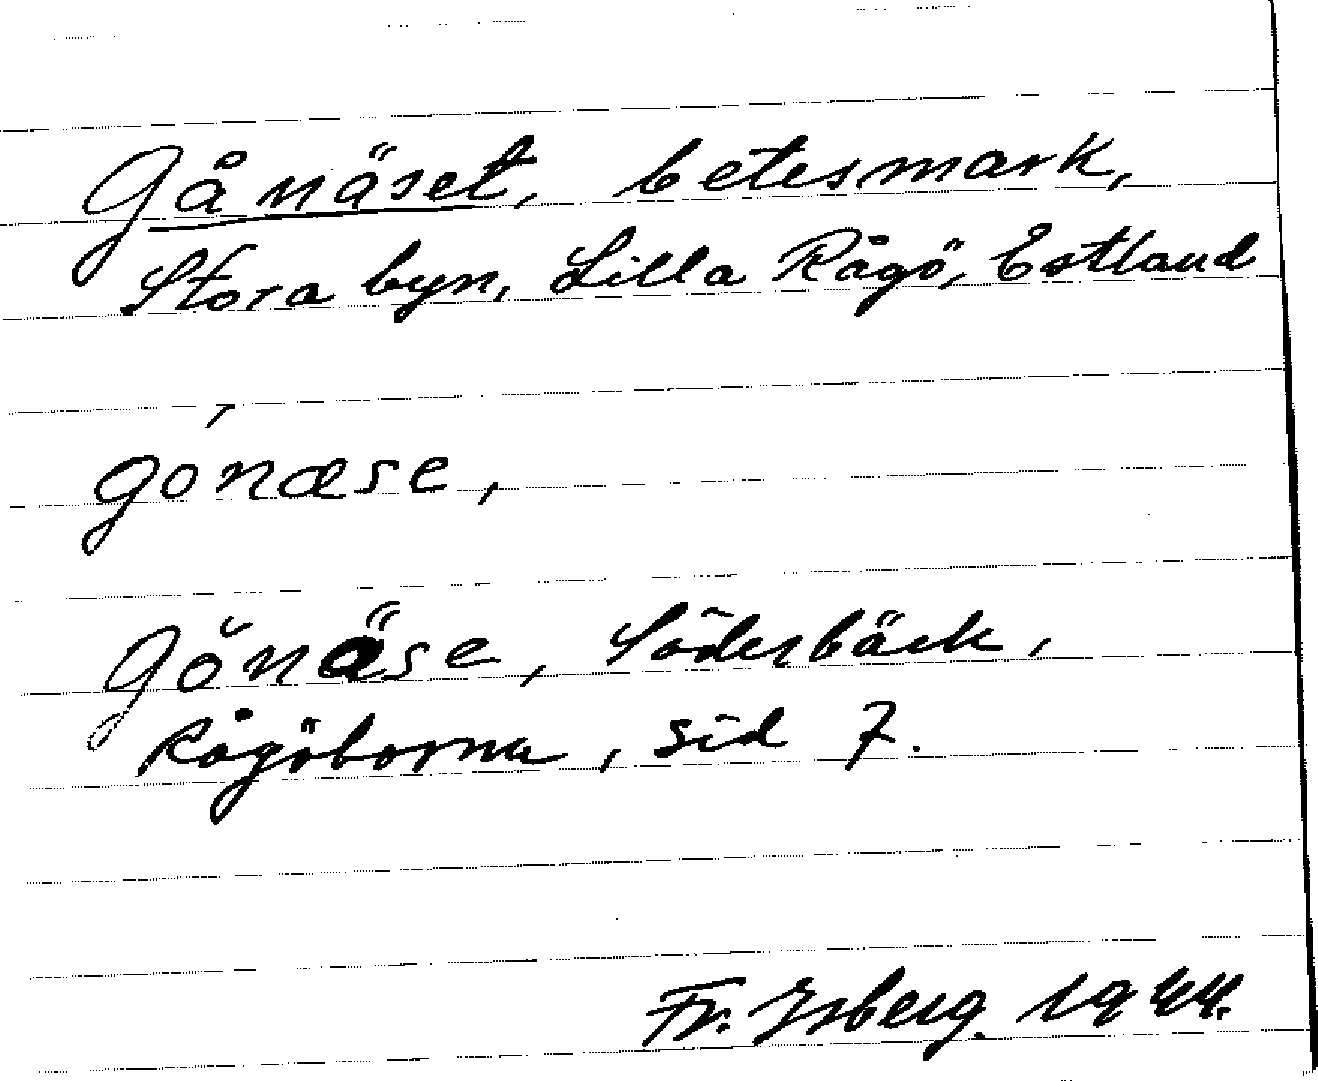 Gånäset, betesmark,
Stora byn, Lilla Rågö, Estland
gónæse,
Gǒnäse, Söderbäck,
Rågöborna, sid 7.
Fr. Isberg. 1944.